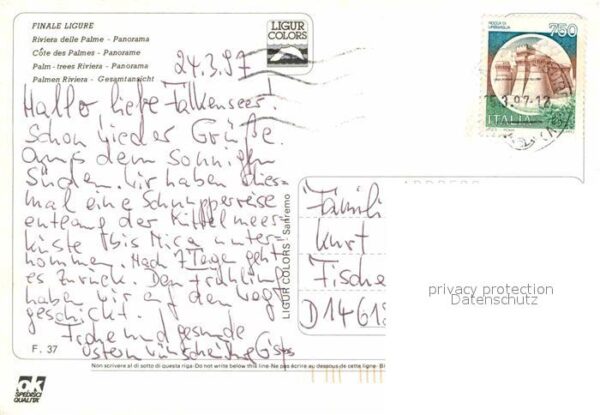 FINALE LIGURE
Riviera delle Palme - Panorama
Côte des Palmes - Panorame
Palm-trees Riviera - Panorama
Palmen Riviera - Gesamtansicht
LIGUR
COLORS
ROCCA DI
URBISAGLIA
750
ITALIA
24.3.97
Hallo liebe Falkenseer!
Schon wieder Grüße
aus dem sonnigen
Süden. Wir haben dies-
mal eine Schnupperreise
entlang der Mittelmeer-
küste bis Nica unter-
nommen. Nach 7 Tagen geht
es zurück. Den Frühling
haben wir auf den Weg
geschickt.
Frohe und gesunde
Ostern wünschen
LIGUR COLORS - Sanremo
Famili
Kurt
Fische
D 1461
privacy protection
Datenschutz
F. 37
Non scrivere al di sotto di questa riga-Do not write below this line-Ne pas écrire au dessous de cette ligne-
ok
SPEDIRCI
QUALITA'